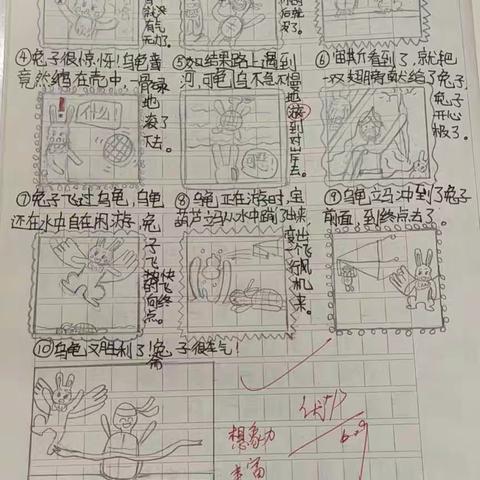 就没
有气
无力了。
后就
没了。
④兔子很惊讶!乌龟竟
然缩在壳中,一骨碌
地
滚了
下去。
什么!
⑤如结果路上遇到
河,可乌龟不急不慢
地
游
到对
岸去。
⑥看到了,就把
一双翅膀献给了兔子,
兔子
开心
极了。
⑦兔子飞过乌龟,乌龟
还在水中自在闲游,兔
子飞
快
地飞
向终
点。
⑧乌龟正在游时,宝
葫芦立马从水中蹦了出来,
变出
一个飞
行风
机来。
⑨乌龟立马冲到了兔子
前面,到终点去了。
⑩乌龟又胜利了!兔子很生气!
优
6.29
想象力
丰富